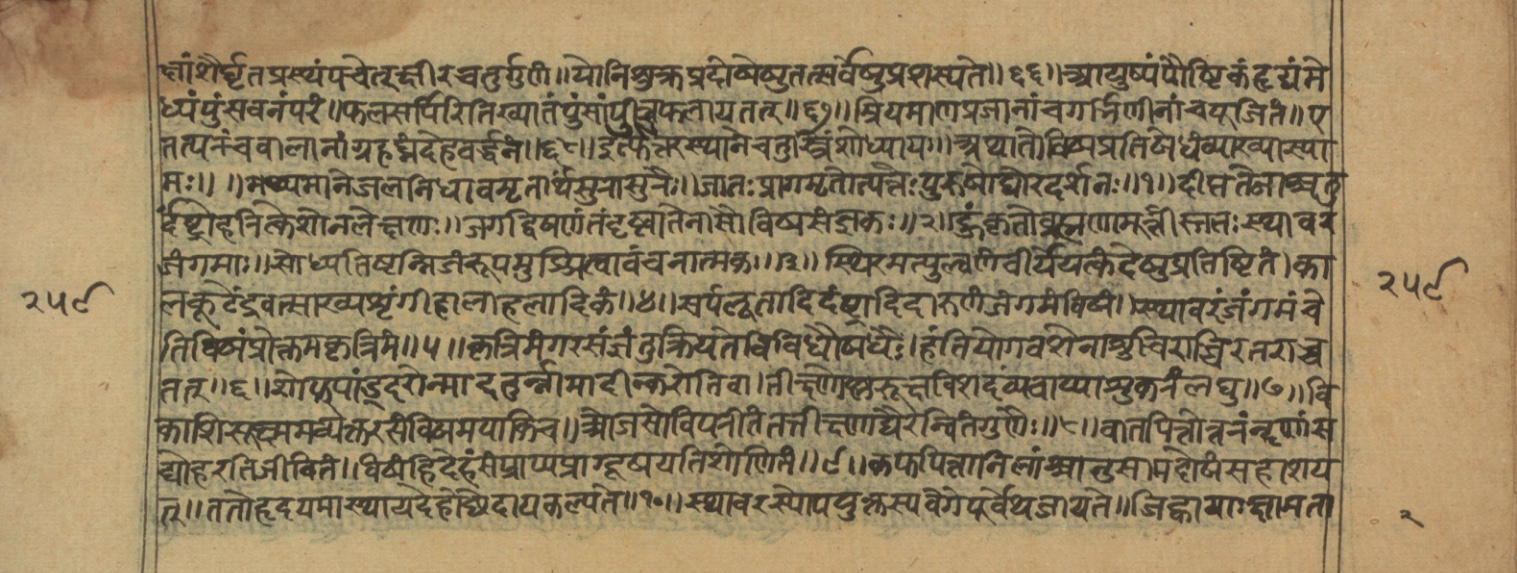 क्षांशैर्घृतप्रस्थंपचेत्क्षीरचतुर्गुणं॥योनिशुक्रप्रदोषेषुतत्सर्वेषुप्रशस्यते॥६६॥आयुष्यंपौष्टिकंहृद्यंमे
ध्यंपुंसवनंपरं॥फलसर्पिरितिख्यातंपुंसांपीतंफलायतत्॥६७॥म्रियमाणप्रजानांचगर्भिणीनांचपूजितं॥ए
तत्परंचबालानांग्रहघ्नंदेहवर्द्धनं॥६८॥इत्युत्तरस्थानेचतुस्त्रिंशोध्यायः॥अथातोविषप्रतिषेधंव्याख्यास्या
मः॥ ॥मथ्यमानेजलनिधावमृतार्थंसुरासुरैः॥जातःप्रागमृतोत्पत्तेःपुरुषोघोरदर्शनः॥१॥दीप्ततेजाश्चतु
र्दंष्ट्रोहरित्केशोनलेक्षणः॥जगद्विषण्णंतंदृष्ट्वातेनासौविषसंज्ञकः॥२॥हुंकृतोब्रह्मणामूर्त्तीततःस्थावर
जंगमाः॥सोध्यतिष्ठन्निजंरूपमुज्झित्वावंचनात्मकं॥३॥स्थिरमत्युल्बणंवीर्येयत्कंदेषुप्रतिष्ठितं।का
लकूटेंद्रवत्साख्यशृंगीहालाहलादिकं॥४॥सर्पलूतादिदंष्ट्रादिदारुणंजंगमंविषं॥स्थावरंजंगमंचे
तिविषंप्रोक्तमकृत्रिमं॥५॥कृत्रिमंगरसंज्ञंतुक्रियतेविविधौषधैः।हंतियोगवशेनाशुचिराच्चिरतराच्च
तत्॥६॥शोफपांडूदरोन्माददुर्न्नामादीन्करोतिवा।तीक्ष्णोष्णरूक्षविशदंव्यवाय्याशुकरंलघु॥७॥वि
काशिसूक्ष्ममव्यक्तरसंविषमपाकिच॥ओजसोविपरीतंतत्तीक्ष्णाद्यैरन्वितंगुणैः॥८॥वातपित्तोत्तरंनृणांस
द्योहरतिजीवितं॥विषंहिदेहंसंप्राप्यप्राग्दूषयतिशोणितं॥९॥कफपित्तानिलांश्चानुसमदोषंसहाशय
त्॥ततोहृदयमास्थायदेहोच्छेदायकल्पते॥१०॥स्थावरस्योपयुक्तस्यवेगेपूर्वेथजायते॥जिह्वायाःश्यामता
२५९
२५९
२